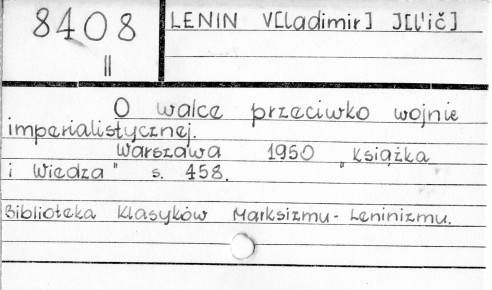 8408
II
LENIN V[ladimir] J[l'ič]
O walce przeciwko wojnie
imperialistycznej.
Warszawa 1950 "Książka
i Wiedza" s. 458.
Biblioteka Klasyków Marksizmu-Leninizmu.